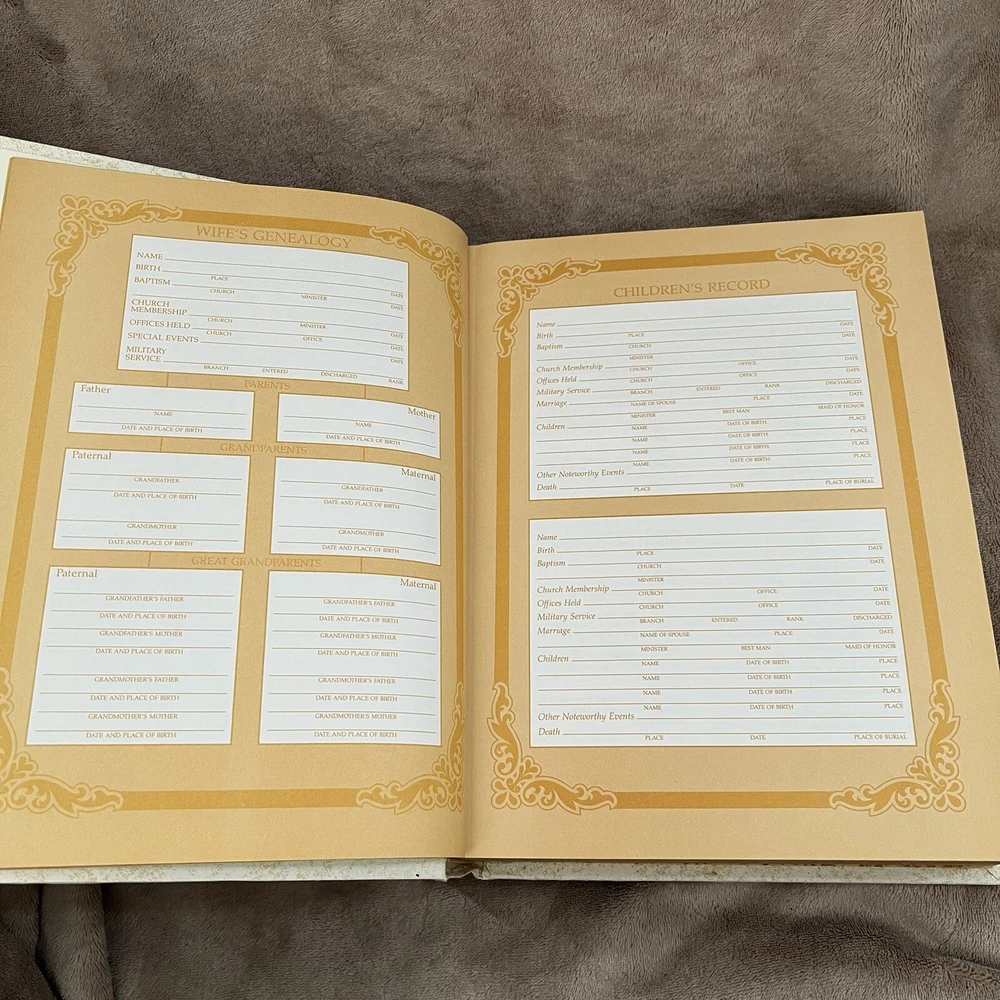 WIFE'S GENEALOGY
NAME
BIRTH
PLACE DATE
BAPTISM
CHURCH MINISTER DATE
CHURCH
MEMBERSHIP
CHURCH MINISTER DATE
OFFICES HELD
CHURCH OFFICE DATE
SPECIAL EVENTS
DATE
MILITARY
SERVICE
BRANCH ENTERED DISCHARGED RANK
PARENTS
Father
NAME
DATE AND PLACE OF BIRTH
Mother
NAME
DATE AND PLACE OF BIRTH
GRANDPARENTS
Paternal
GRANDFATHER
DATE AND PLACE OF BIRTH
GRANDMOTHER
DATE AND PLACE OF BIRTH
Maternal
GRANDFATHER
DATE AND PLACE OF BIRTH
GRANDMOTHER
DATE AND PLACE OF BIRTH
GREAT GRANDPARENTS
Paternal
GRANDFATHER'S FATHER
DATE AND PLACE OF BIRTH
GRANDFATHER'S MOTHER
DATE AND PLACE OF BIRTH
GRANDMOTHER'S FATHER
DATE AND PLACE OF BIRTH
GRANDMOTHER'S MOTHER
DATE AND PLACE OF BIRTH
Maternal
GRANDFATHER'S FATHER
DATE AND PLACE OF BIRTH
GRANDFATHER'S MOTHER
DATE AND PLACE OF BIRTH
GRANDMOTHER'S FATHER
DATE AND PLACE OF BIRTH
GRANDMOTHER'S MOTHER
DATE AND PLACE OF BIRTH
CHILDREN'S RECORD
Name
Birth
PLACE DATE
Baptism
CHURCH DATE
MINISTER
Church Membership
CHURCH OFFICE DATE
Offices Held
CHURCH OFFICE DATE
Military Service
BRANCH ENTERED RANK DISCHARGED
Marriage
NAME OF SPOUSE PLACE DATE
MINISTER BEST MAN MAID OF HONOR
Children
NAME DATE OF BIRTH PLACE
NAME DATE OF BIRTH PLACE
NAME DATE OF BIRTH PLACE
NAME DATE OF BIRTH PLACE
Other Noteworthy Events
Death
PLACE DATE PLACE OF BURIAL
Name
Birth
PLACE DATE
Baptism
CHURCH DATE
MINISTER
Church Membership
CHURCH OFFICE DATE
Offices Held
CHURCH OFFICE DATE
Military Service
BRANCH ENTERED RANK DISCHARGED
Marriage
NAME OF SPOUSE PLACE DATE
MINISTER BEST MAN MAID OF HONOR
Children
NAME DATE OF BIRTH PLACE
NAME DATE OF BIRTH PLACE
NAME DATE OF BIRTH PLACE
NAME DATE OF BIRTH PLACE
Other Noteworthy Events
Death
PLACE DATE PLACE OF BURIAL